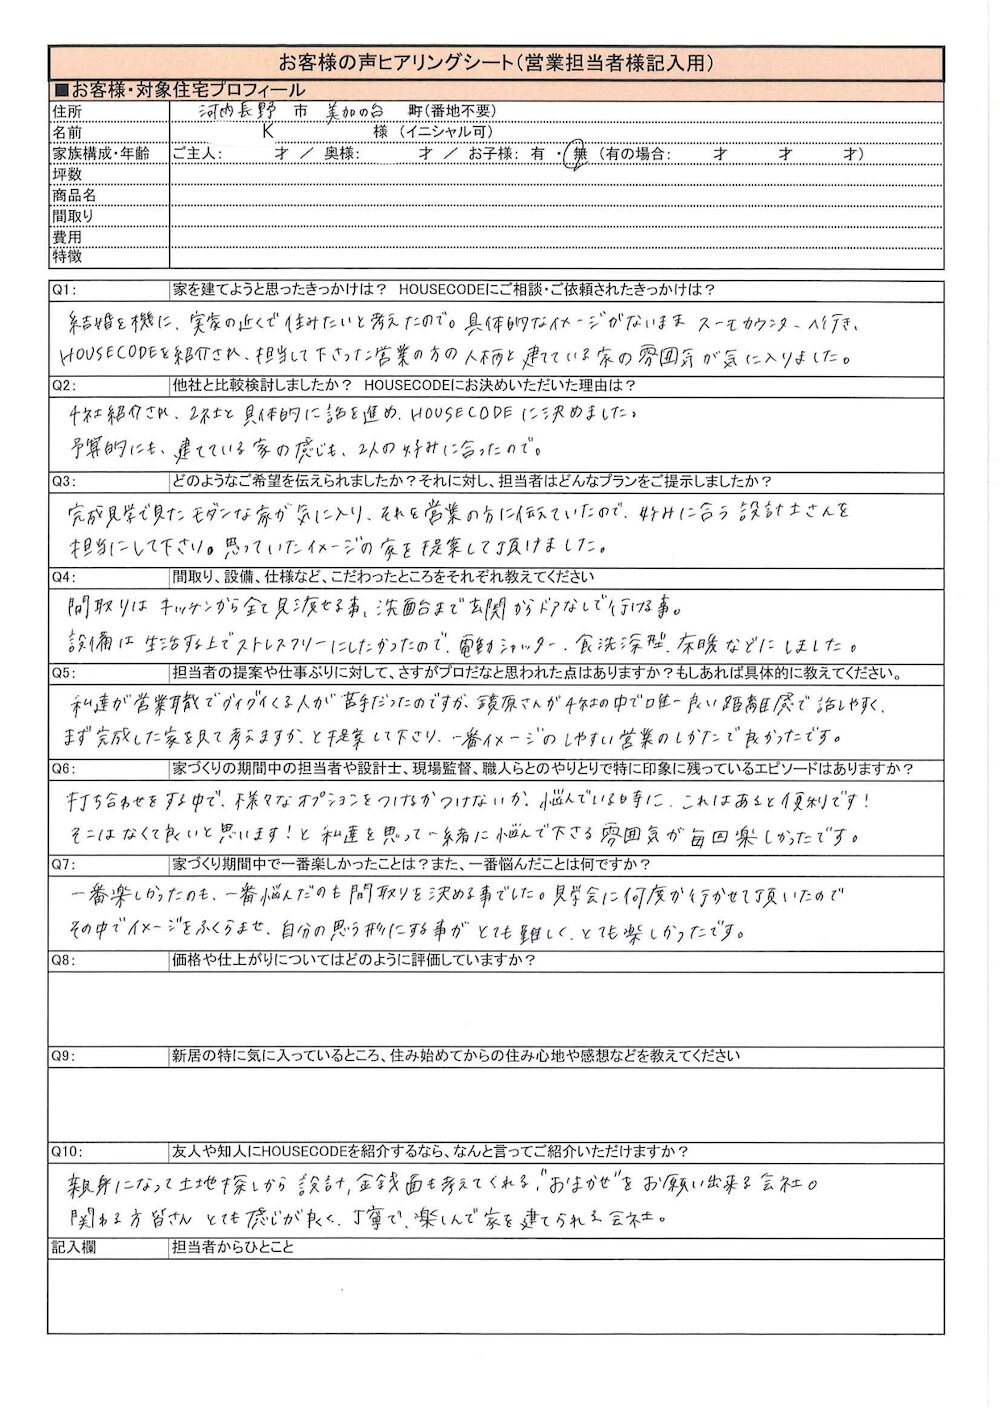 お客様の声ヒアリングシート（営業担当者様記入用）
■お客様・対象住宅プロフィール
住所 河内長野 市 美加の台 町（番地不要）
名前 K 様（イニシャル可）
家族構成・年齢 ご主人： 才 ／ 奥様： 才 ／ お子様： 有 ・ 無 （有の場合： 才 才 才）
坪数
商品名
間取り
費用
特徴
Q1： 家を建てようと思ったきっかけは？ HOUSECODEにご相談・ご依頼されたきっかけは？
結婚を機に、実家の近くで住みたいと考えたので。具体的なイメージがないまま スーモカウンターへ行き、
HOUSECODEを紹介され、担当して下さった営業の方の人柄と建てている家の雰囲気が気に入りました。
Q2： 他社と比較検討しましたか？ HOUSECODEにお決めいただいた理由は？
4社紹介され、2社と具体的に話を進め、HOUSECODEに決めました。
予算的にも、建てている家の感じも、2人の好みに合ったので。
Q3： どのようなご希望を伝えられましたか？それに対し、担当者はどんなプランをご提示しましたか？
完成見学で見たモダンな家が気に入り、それを営業の方に伝えていたので、好みに合う設計士さんを
担当にして下さり。思っていたイメージの家を提案して頂けました。
Q4： 間取り、設備、仕様など、こだわったところをそれぞれ教えてください
間取りはキッチンから全て見渡せる事、洗面台まで玄関からドアなしで行ける事。
設備は生活する上でストレスフリーにしたかったので、電動シャッター、食洗深型、床暖などにしました。
Q5： 担当者の提案や仕事ぶりに対して、さすがプロだなと思われた点はありますか？もしあれば具体的に教えてください。
私達が営業職でグイグイくる人が苦手だったのですが、鏡原さんが4社の中で唯一良い距離感で話しやすく、
まず完成した家を見て考えますか、と提案して下さり、一番イメージのしやすい営業のしかたで良かったです。
Q6： 家づくりの期間中の担当者や設計士、現場監督、職人らとのやりとりで特に印象に残っているエピソードはありますか？
打ち合わせをする中で、様々なオプションをつけるかつけないか、悩んでいる時に、これはあると便利です！
そこはなくて良いと思います！と私達を思って一緒に悩んで下さる雰囲気が毎回楽しかったです。
Q7： 家づくり期間中で一番楽しかったことは？また、一番悩んだことは何ですか？
一番楽しかったのも、一番悩んだのも間取りを決める事でした。見学会に何度か行かせて頂いたので
その中でイメージをふくらませ、自分の思う形にする事がとても難しく、とても楽しかったです。
Q8： 価格や仕上がりについてはどのように評価していますか？
Q9： 新居の特に気に入っているところ、住み始めてからの住み心地や感想などを教えてください
Q10： 友人や知人にHOUSECODEを紹介するなら、なんと言ってご紹介いただけますか？
親身になって土地探しから設計、金銭面も考えてくれる、"おまかせ"をお願い出来る会社。
関わる方皆さんとても感じが良く、丁寧で、楽しんで家を建てられる会社。
記入欄 担当者からひとこと